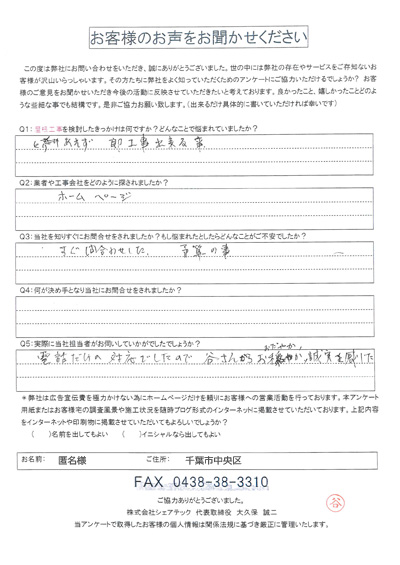 お客様のお声をお聞かせください
この度は弊社にお問い合わせをいただき、誠にありがとうございました。世の中には弊社の存在やサービスをご存知ないお
客様が沢山いらっしゃいます。その方たちに弊社をよく知っていただくためのアンケートにご協力いただけるでしょうか? お客
様のご意見をお聞かせいただき今後の活動に反映させていただきたいと考えております。良かったこと、嬉しかったことどのよ
うな些細な事でも結構です。是非ご協力お願い致します。(出来るだけ具体的に書いていただければ幸いです)
Q1:屋根工事を検討したきっかけは何ですか?どんなことで悩まれていましたか?
即工事出来る事
Q2:業者や工事会社をどのように探されましたか?
ホームページ
Q3:当社を知りすぐにお問合せをされましたか?もし悩まれたとしたらどんなことがご不安でしたか?
すぐ問合わせした、 予算の事
Q4:何が決め手となり当社にお問合せをされましたか?
Q5:実際に当社担当者がお伺いしていかがでしたでしょうか?
おだやか
電話だけの対応でしたので 谷さんが 誠実を感じた
*弊社は広告宣伝費を極力かけない為にホームページだけを頼りにお客様への営業活動を行っております。本アンケート
用紙またはお客様宅の調査風景や施工状況を随時ブログ形式のインターネットに掲載させていただいております。上記内容
をインターネットや印刷物に掲載させていただいてもよろしいでしょうか?
( )名前を出してもよい ( )イニシャルなら出してもよい
お名前: 匿名様 ご住所: 千葉市中央区
FAX 0438-38-3310
ご協力ありがとうございました。
株式会社シェアテック 代表取締役 大久保 誠二
谷
当アンケートで取得したお客様の個人情報は関係法規に基づき厳正に管理いたします。